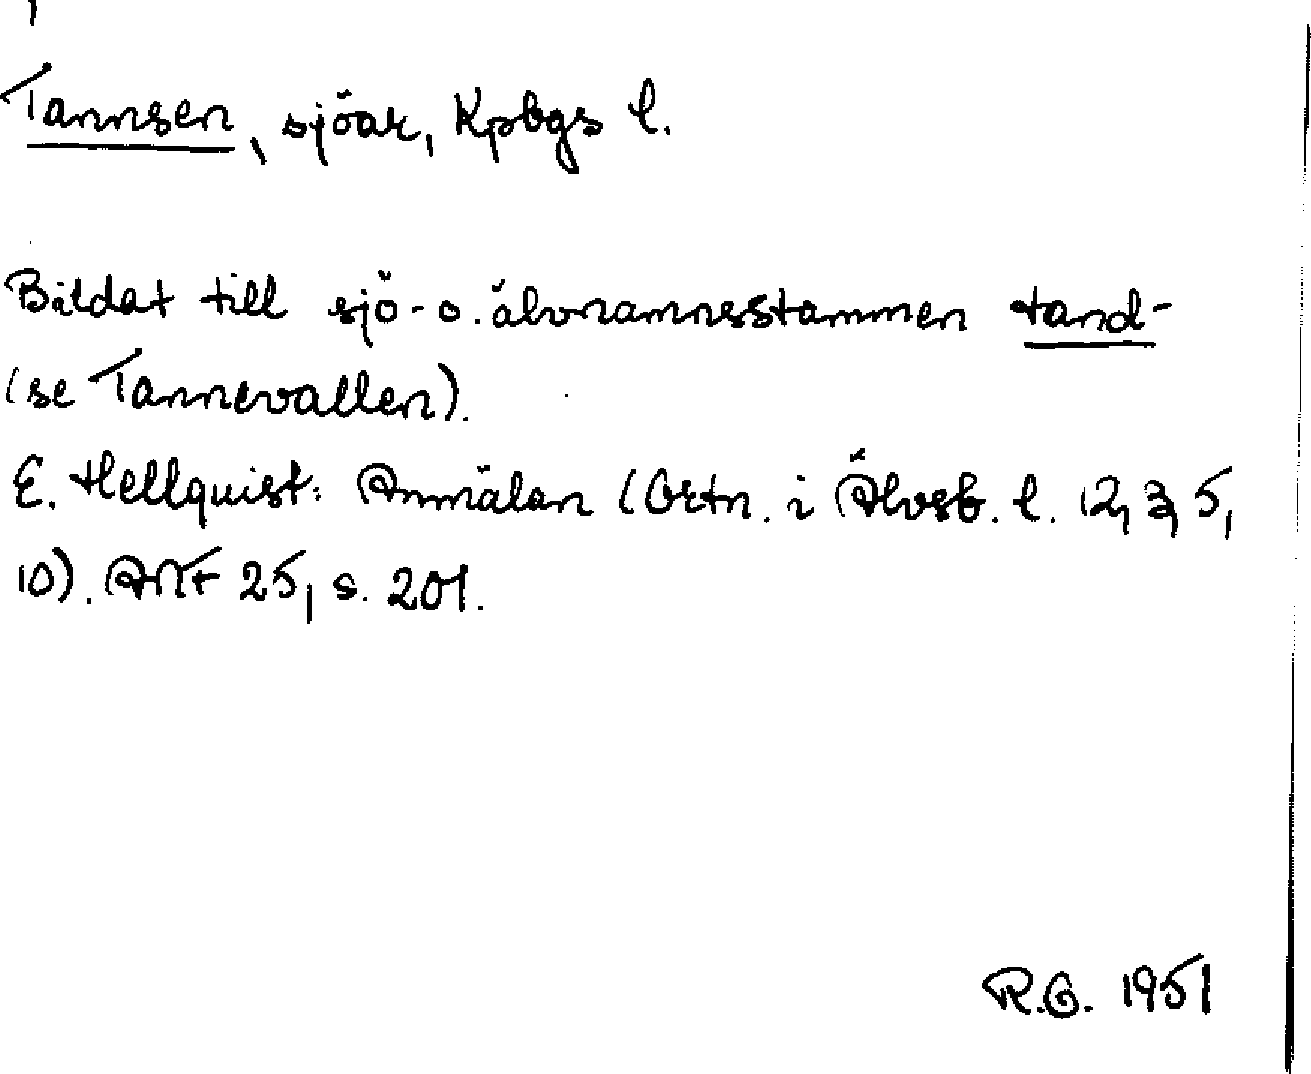 Tannsen, sjöar, Kpbgs l.
Bildat till sjö- o. älvnamnsstammen tand-
(se Tannevallen).
E. Hellquist: Anmälan (Ortn. i Älvsb. l. 12, 3, 5,
10). ANF 25, s. 201.
R.G. 1951